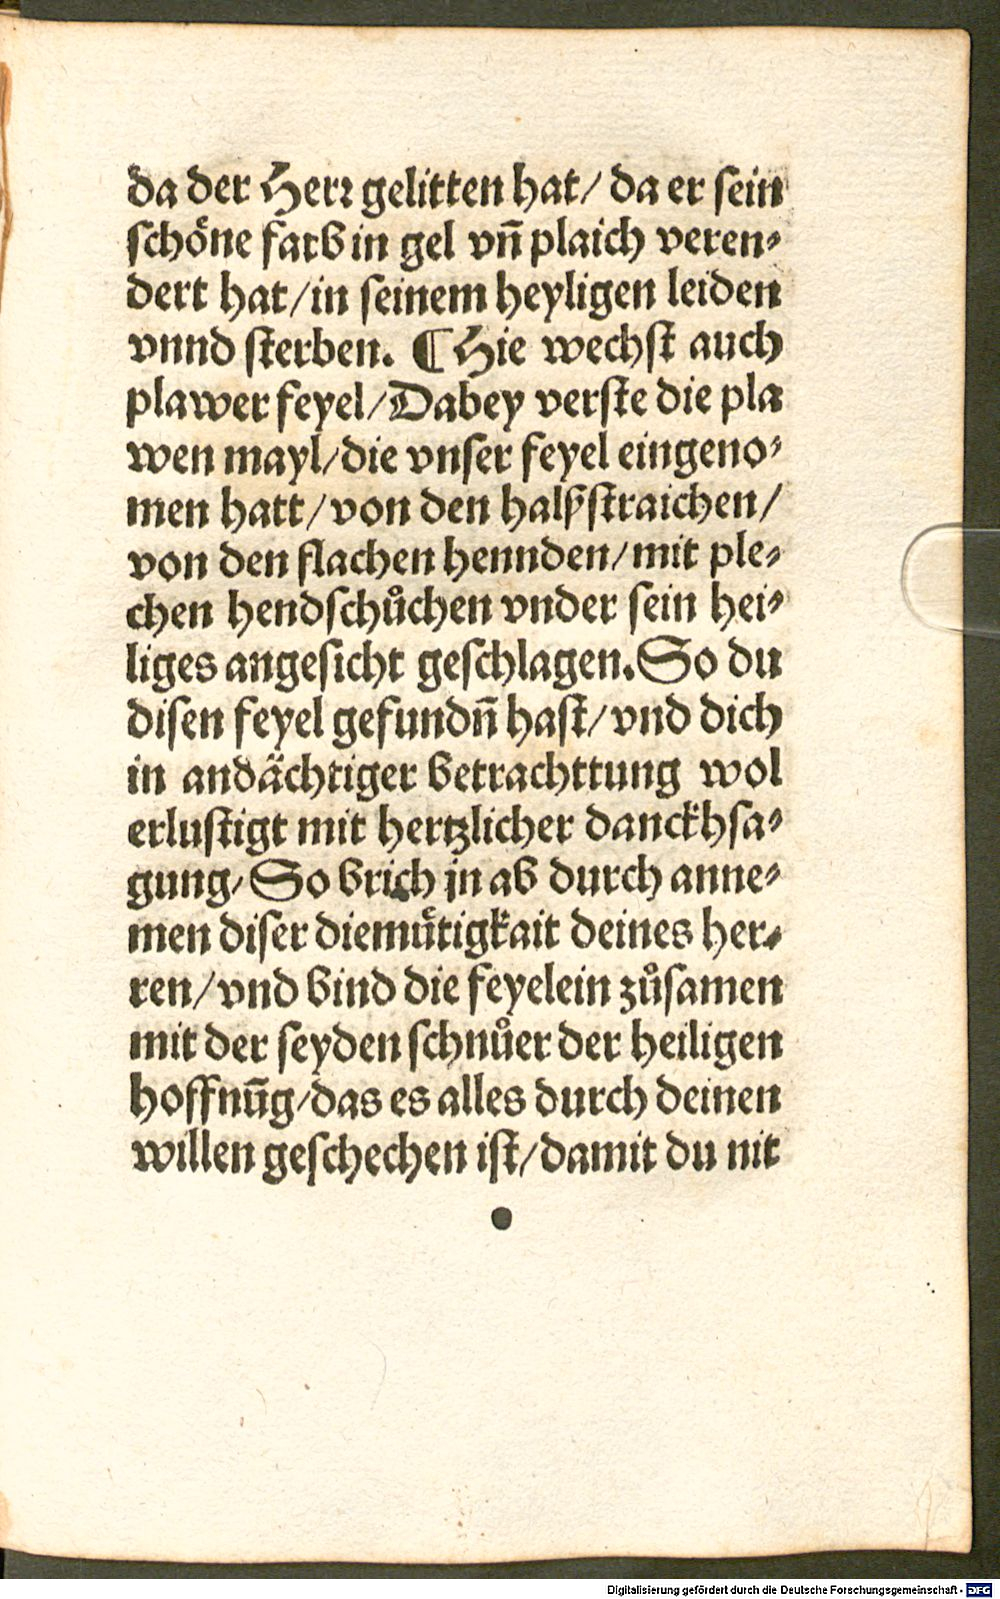 da der Herꝛ gelitten hat/ da er sein
schoͤne farb in gel vn̄ plaich veren⸗
dert hat/in seinem heyligen leiden
vnnd sterben. ¶ Hie wechst auch
plawer feyel/Dabey verste die pla
wen mayl/die vnser feyel eingeno⸗
men hatt/von den halßstraichen/
von den flachen hennden/mit ple⸗
chen hendschůchen vnder sein hei⸗
liges angesicht geschlagen.So du
disen feyel gefundn̄ hast/vnd dich
in andaͤchtiger betrachttung wol
erlustigt mit hertzlicher danckhsa⸗
gung/So brich jn ab durch anne⸗
men diser diemuͤtigkait deines her⸗
ren/vnd bind die feyelein zůsamen
mit der seyden schnůer der heiligen
hoffnūg/das es alles durch deinen
willen geschechen ist/damit du nit
Digitalisierung gefördert durch die Deutsche Forschungsgemeinschaft - DFG